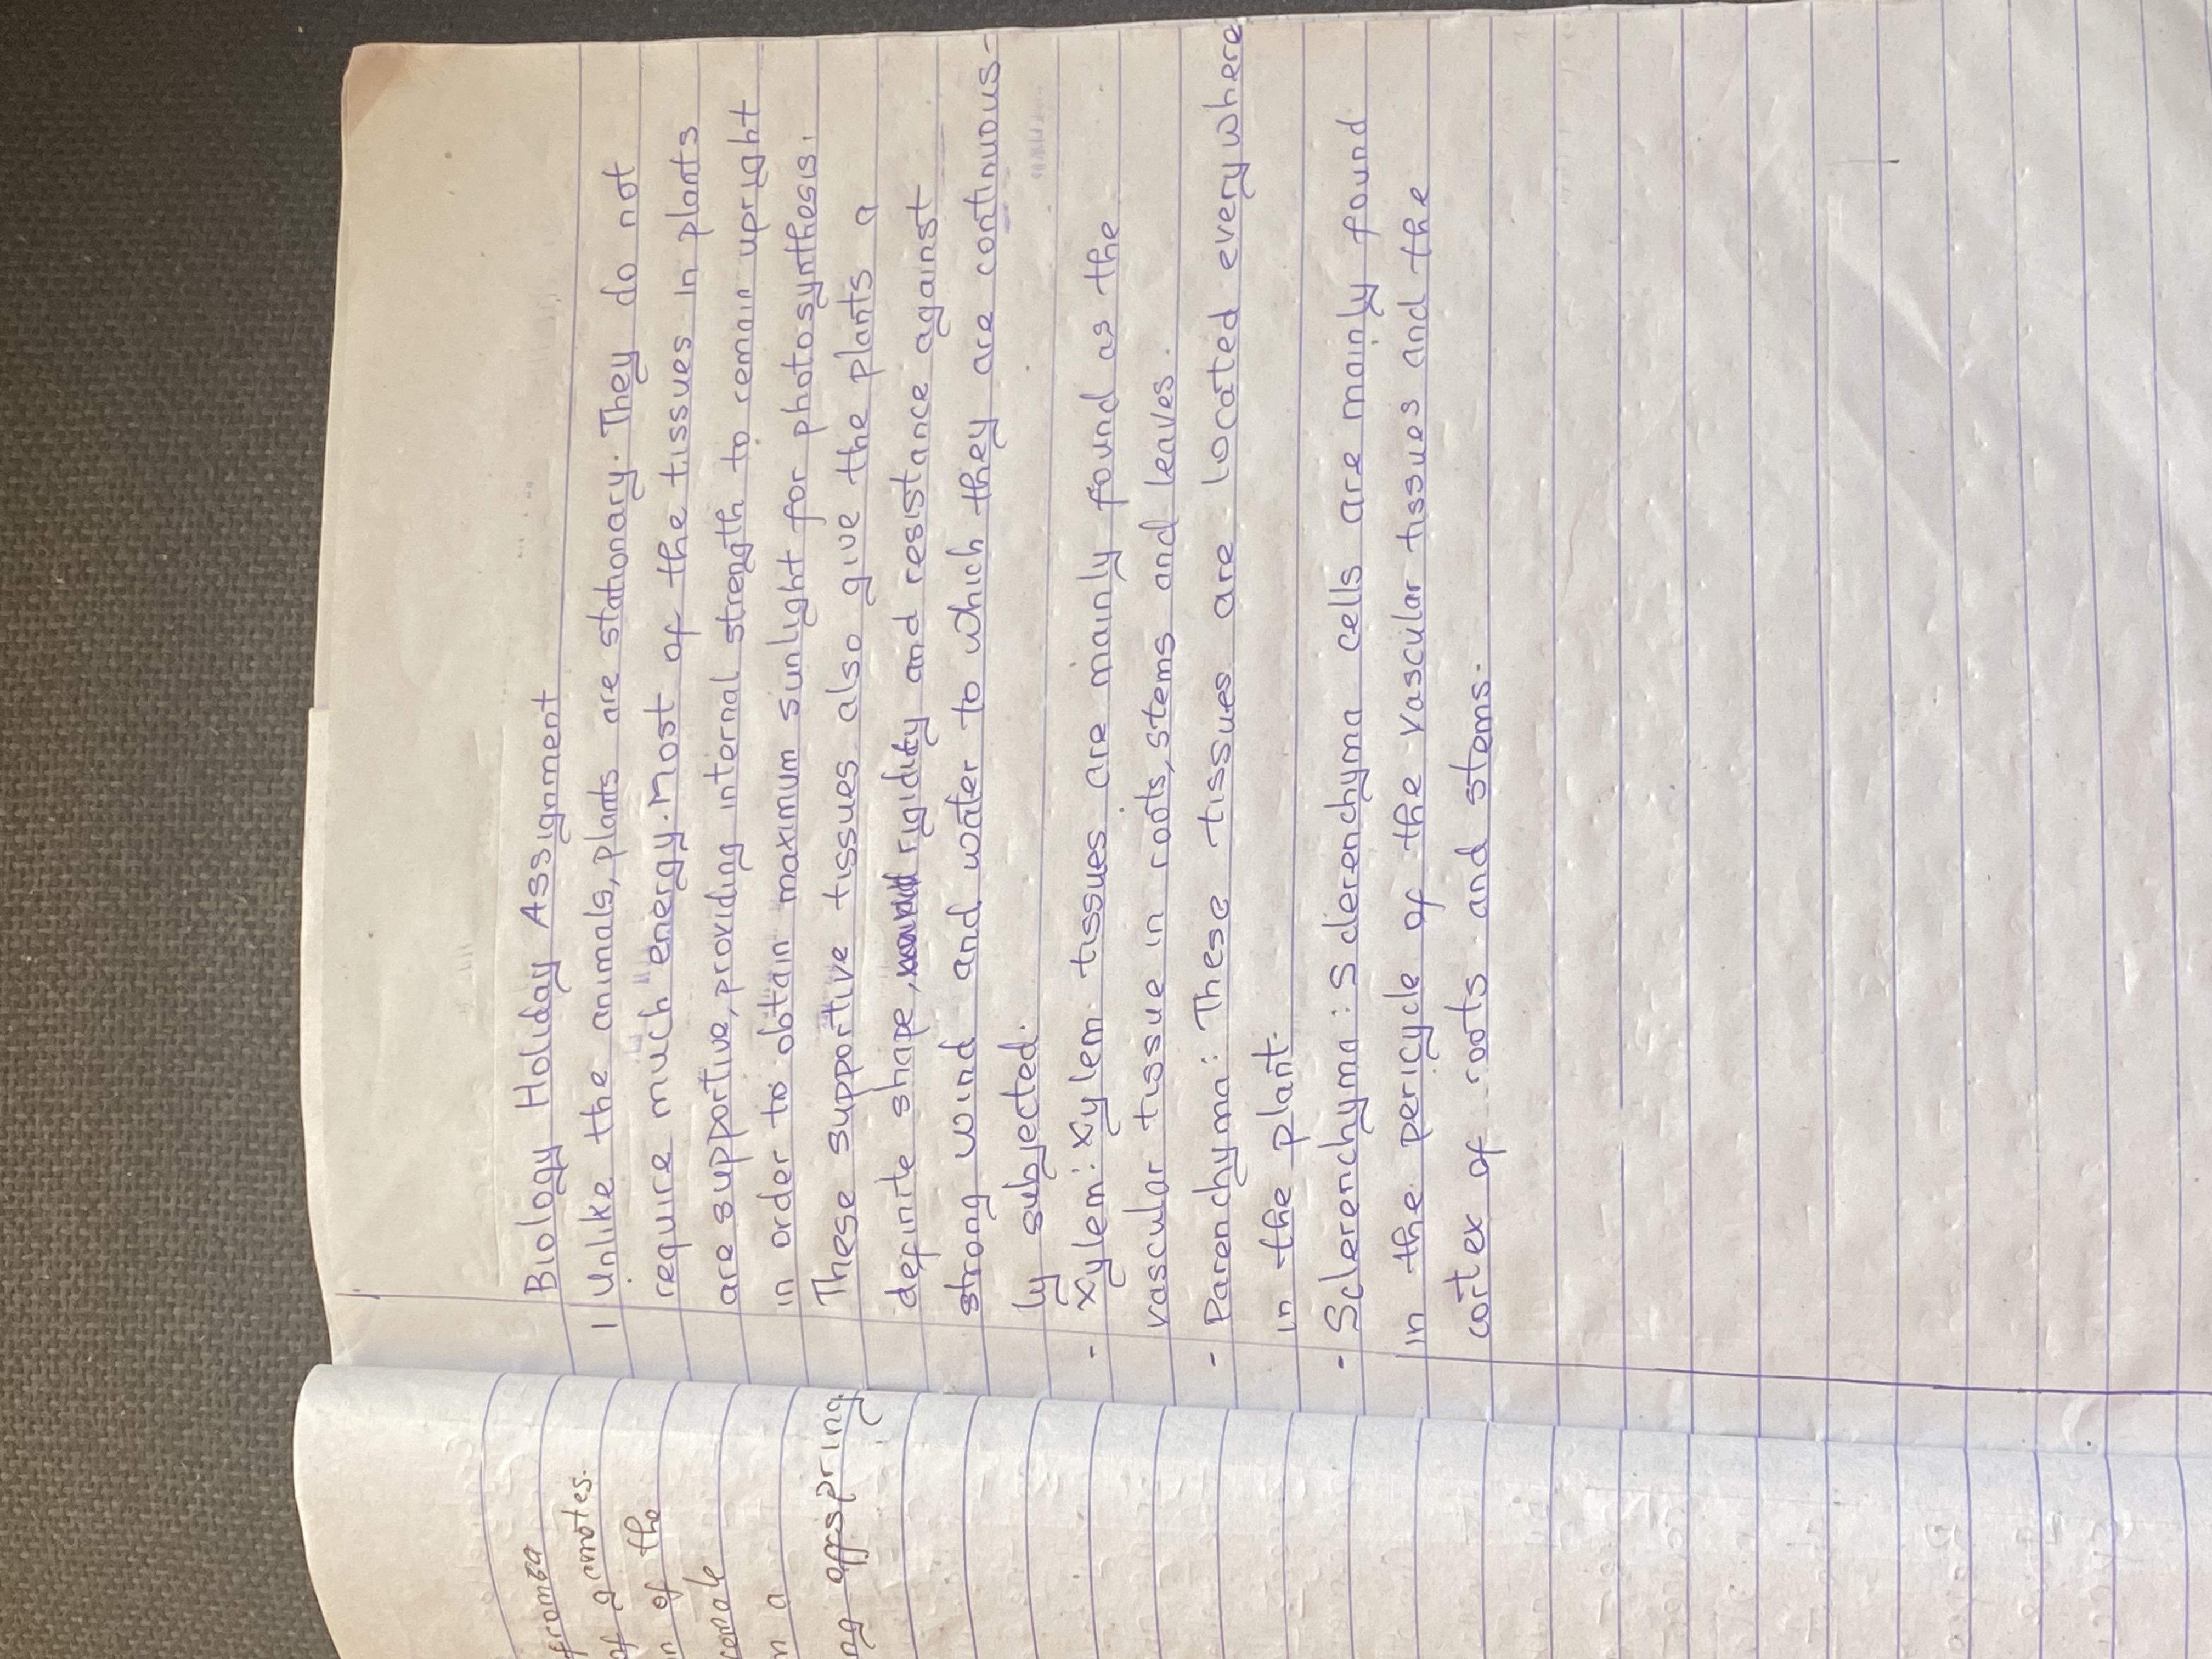 Biology Holiday Assignment
1 Unlike the animals, plants are stationary. They do not
require much energy. Most of the tissues in plants
are supportive, providing internal strength to remain upright
in order to obtain maximum sunlight for photosynthesis.
These supportive tissues also give the plants a
definite shape, rigidity and resistance against
strong wind and water to which they are continuous-
ly subjected.
- Xylem: Xylem tissues are mainly found as the
vascular tissue in roots, stems and leaves.
- Parenchyma: These tissues are located everywhere
in the plant.
- Sclerenchyma: Sclerenchyma cells are mainly found
in the pericycle of the vascular tissues and the
cortex of roots and stems.
of gamotes.
n of the
n a
ng offspring.